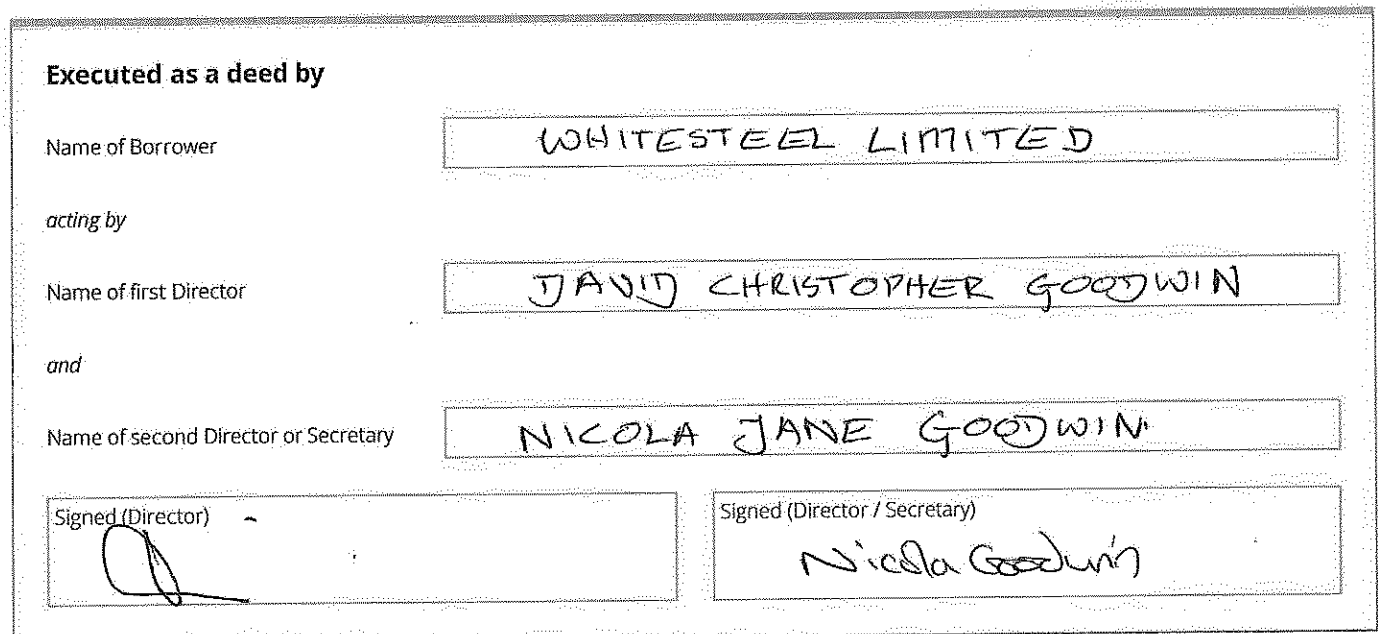 Executed as a deed by
Name of Borrower WHITESTEEL LIMITED
acting by
Name of first Director DAVID CHRISTOPHER GOODWIN
and
Name of second Director or Secretary NICOLA JANE GOODWIN
Signed (Director) Signed (Director / Secretary)
Nicola Goodwin